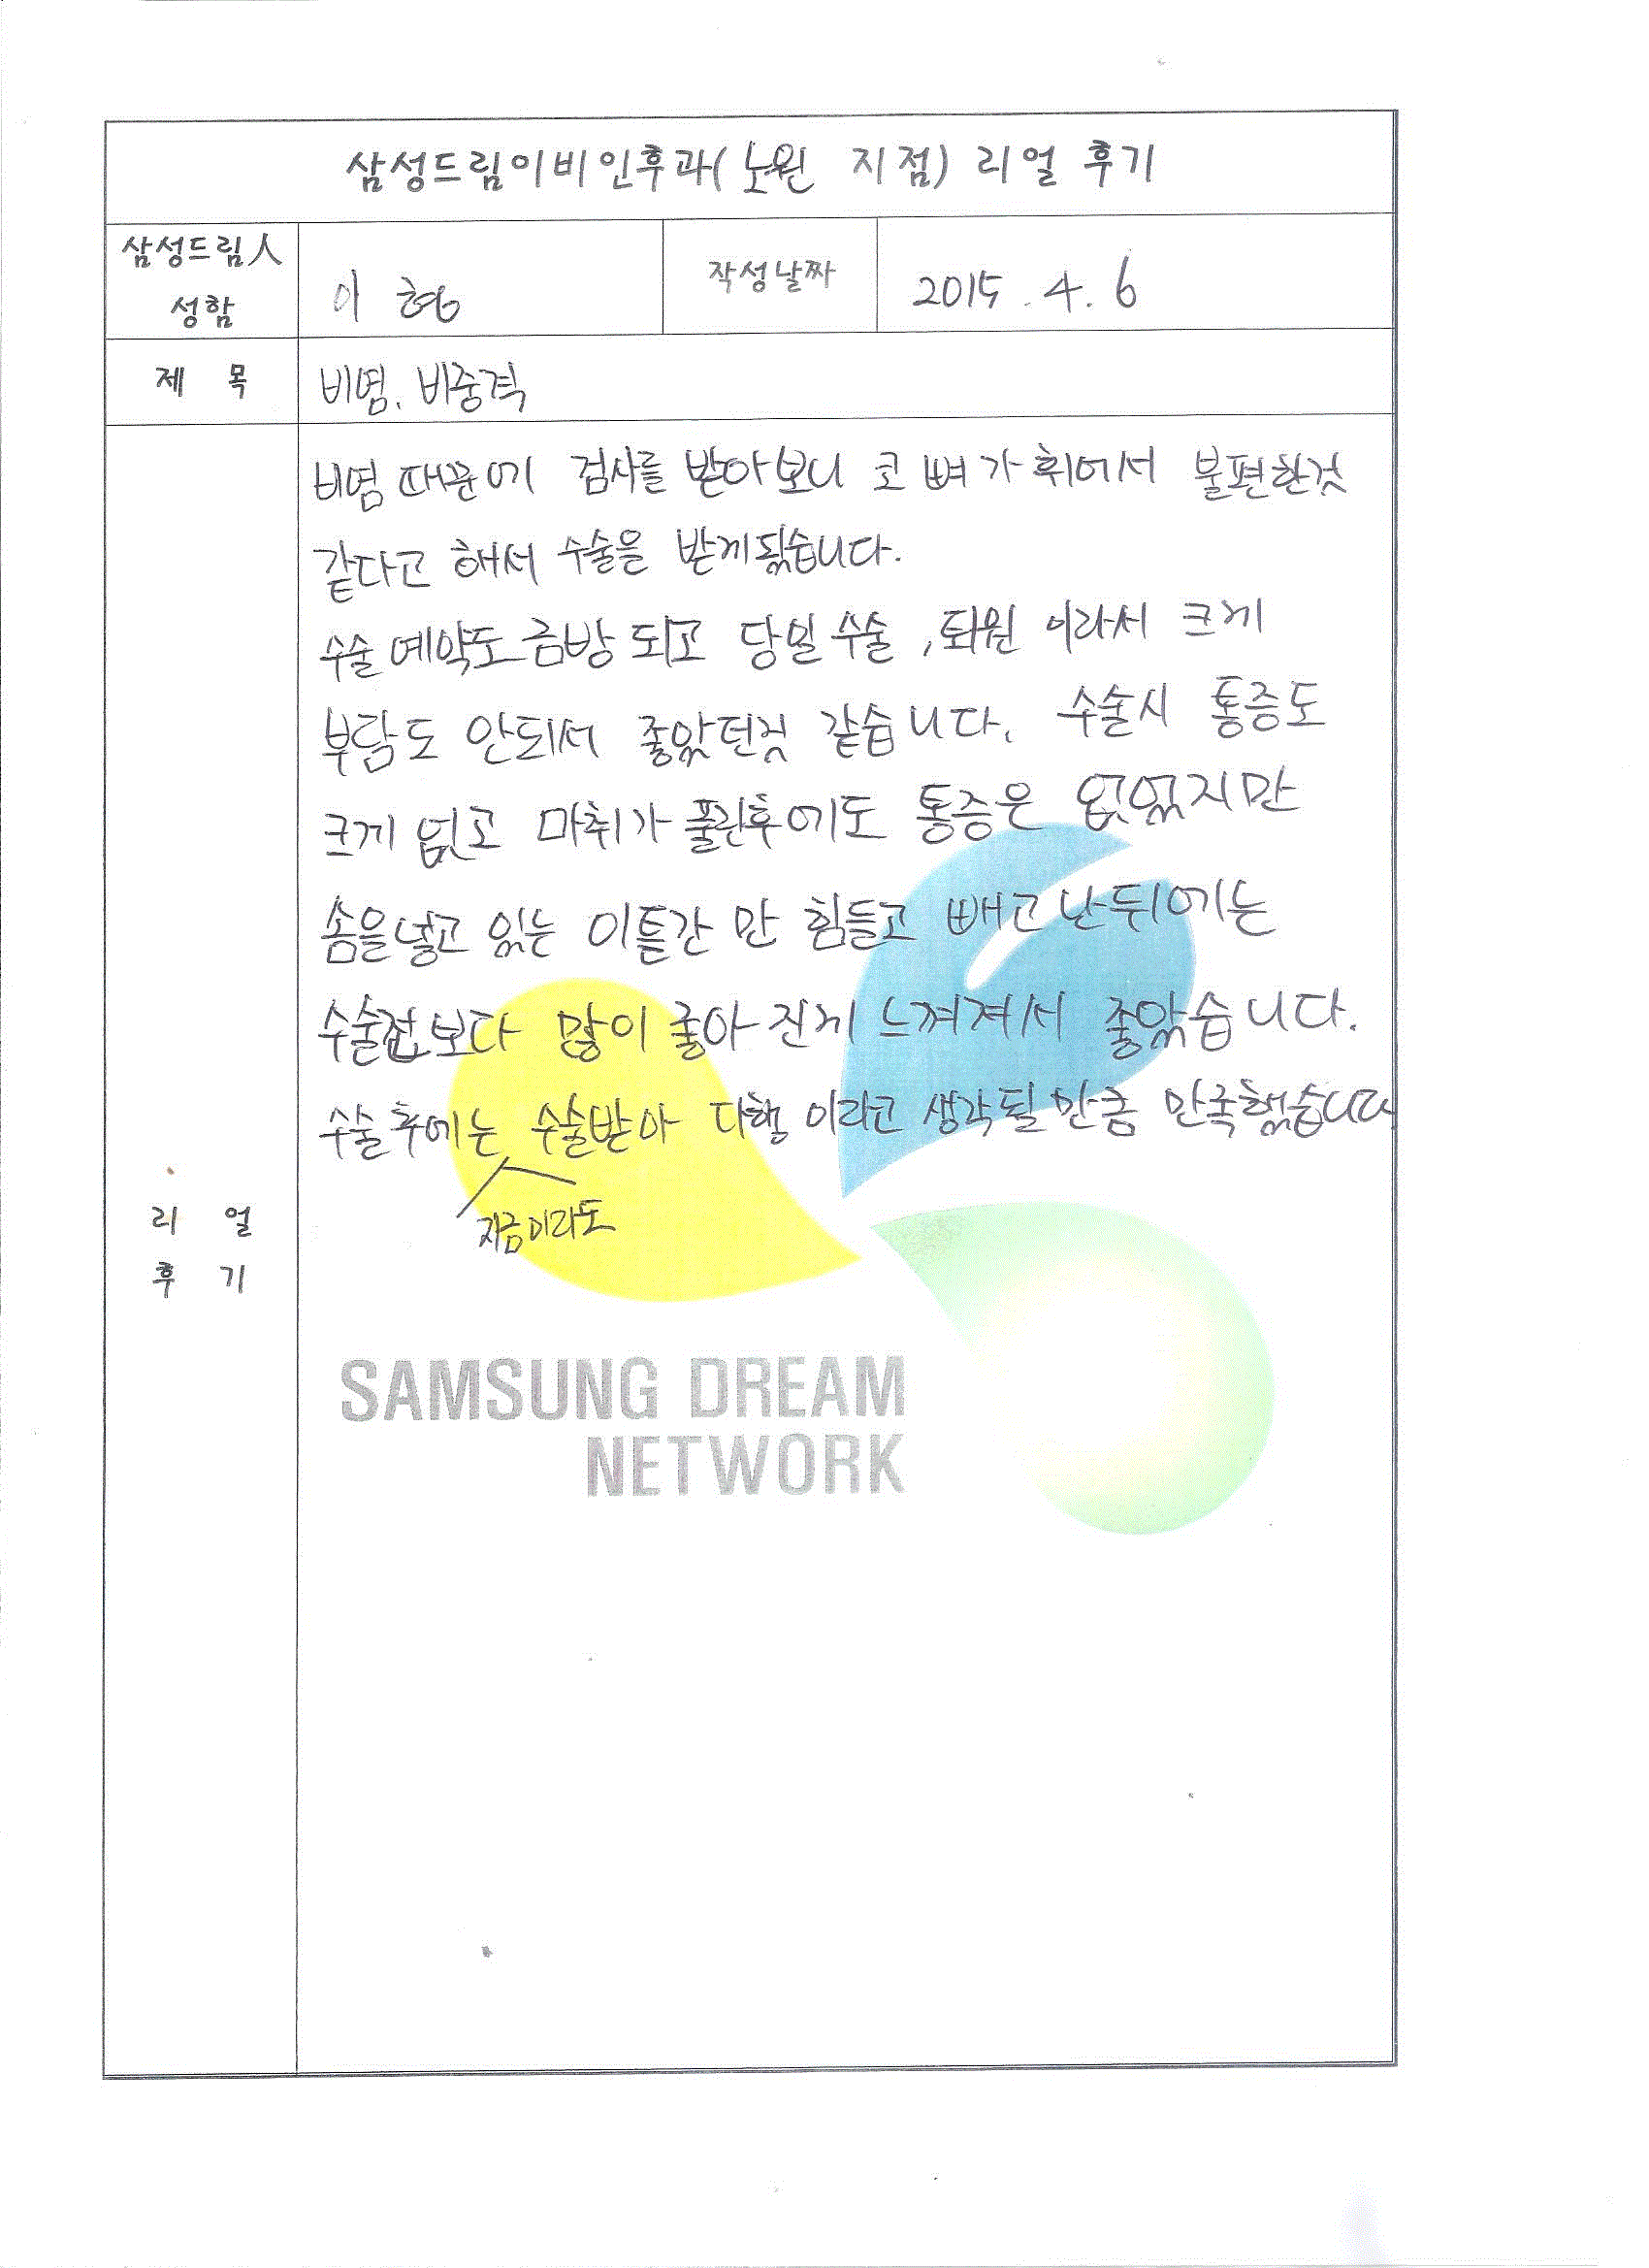 삼성드림이비인후과( 노원 지점) 리얼 후기
삼성드림人
성함
이 형
작성날짜
2015. 4. 6
제 목
비염. 비중격
비염 때문에 검사를 받아보니 코 뼈가 휘에서 불편한것
같다고 해서 수술을 받게됬습니다.
수술 예약도 금방 되고 당일 수술, 퇴원 이라서 크게
부담도 안되서 좋았던것 같습니다. 수술시 통증도
크게 없고 마취가 풀린후에도 통증은 없었지만
솜을넣고 있는 이틀간 만 힘들고 빼고 난뒤에는
수술전보다 많이 좋아 진게 느껴져서 좋았습니다.
수술 후에는 수술받아 다행 이라고 생각될 만큼 만족했습니다
지금이라도
리 얼
후 기
SAMSUNG DREAM
NETWORK